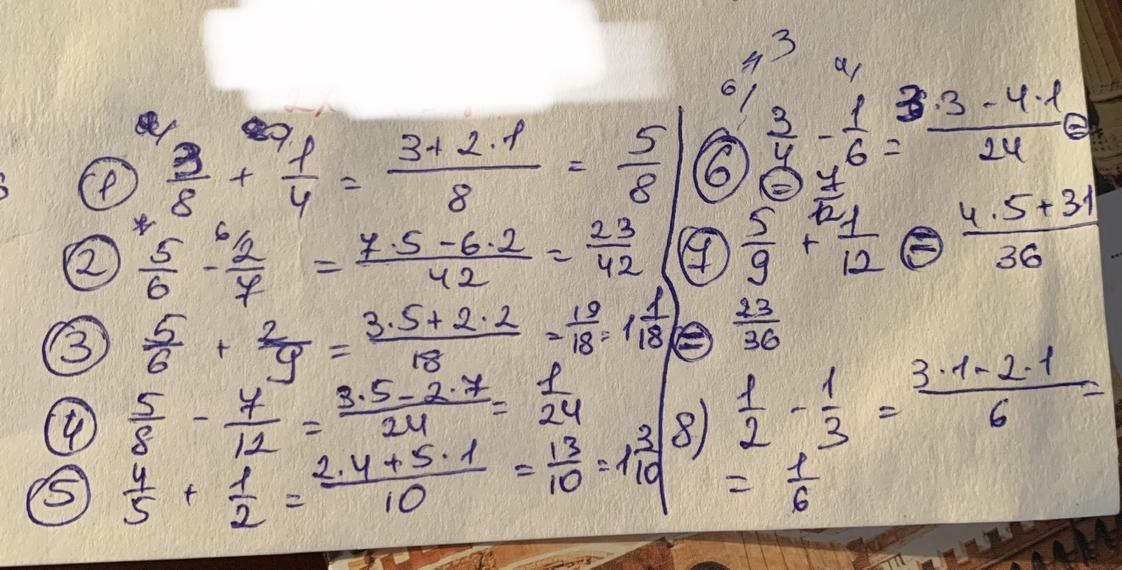 ① 3/8 + 1/4 = (3+2·1)/8 = 5/8
② 5/6 - 2/7 = (7·5-6·2)/42 = 23/42
③ 5/6 + 2/9 = (3·5+2·2)/18 = 19/18 = 1 1/18
④ 5/8 - 7/12 = (3·5-2·7)/24 = 1/24
⑤ 4/5 + 1/2 = (2·4+5·1)/10 = 13/10 = 1 3/10
⑥ 3/4 - 1/6 = (6·3-4·1)/24 =
= 7/12
⑦ 5/9 + 1/12 = (4·5+31)/36
= 23/36
8) 1/2 - 1/3 = (3·1-2·1)/6 =
= 1/6